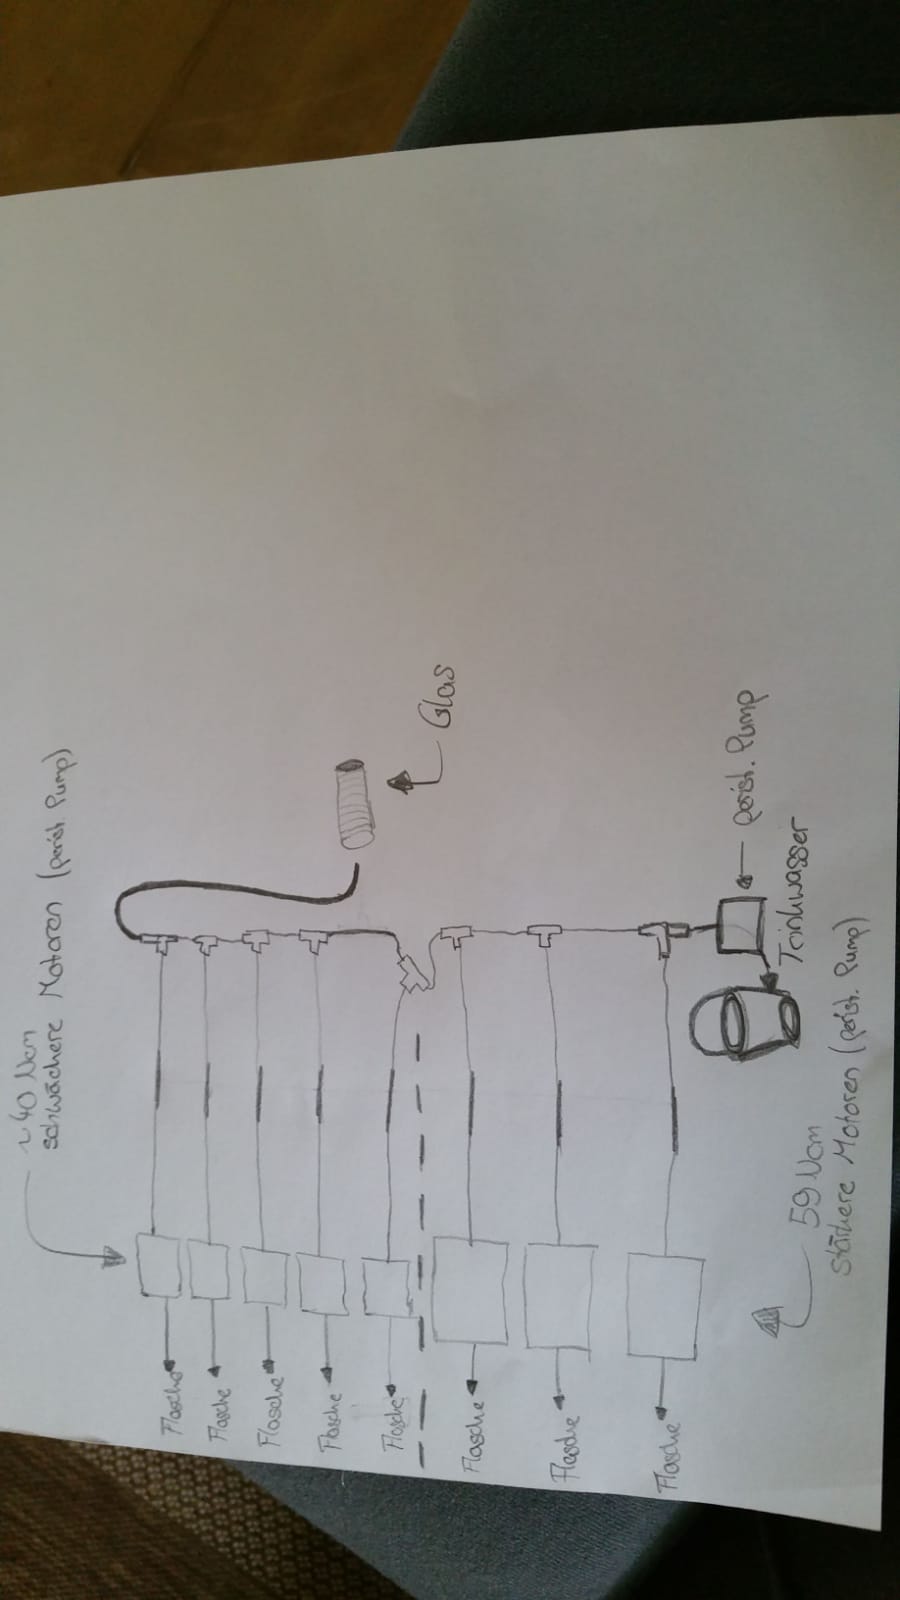 ~40 Ncm
schwächere Motoren (perist. Pump)
Flasche
Flasche
Flasche
Flasche
Flasche
Glas
Flasche
Flasche
Flasche
perist. Pump
Trinkwasser
59 Ncm
stärkere Motoren (perist. Pump)